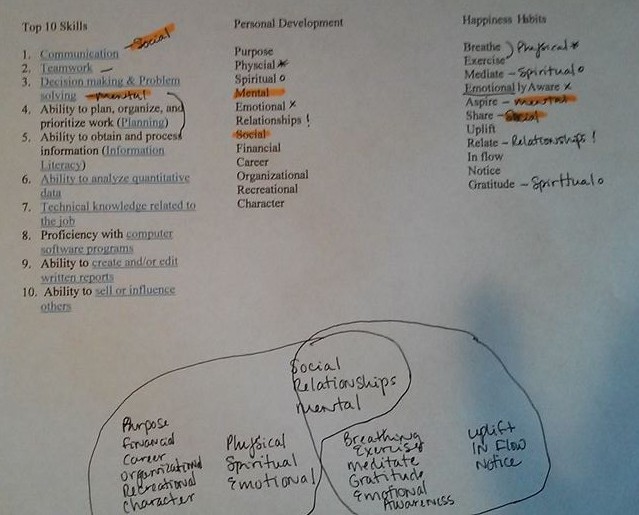 Top 10 Skills
Social
1. Communication
2. Teamwork
3. Decision making & Problem
solving - mental
4. Ability to plan, organize, and
prioritize work (Planning)
5. Ability to obtain and process
information (Information
Literacy)
6. Ability to analyze quantitative
data
7. Technical knowledge related to
the job
8. Proficiency with computer
software programs
9. Ability to create and/or edit
written reports
10. Ability to sell or influence
others
Personal Development
Purpose
Physcial *
Spiritual o
Mental
Emotional x
Relationships !
Social
Financial
Career
Organizational
Recreational
Character
Happiness Habits
Breathe Physical *
Exercise
Mediate - Spiritual o
Emotional ly Aware x
Aspire - mental
Share - Social
Uplift
Relate - Relationships !
In flow
Notice
Gratitude - Spiritual o
Social
Relationships
mental
Purpose
Financial
Career
Organizational
Recreational
Character
Physical
Spiritual
Emotional
Breathing
Exercise
meditate
Gratitude
Emotional
Awareness
uplift
IN Flow
Notice